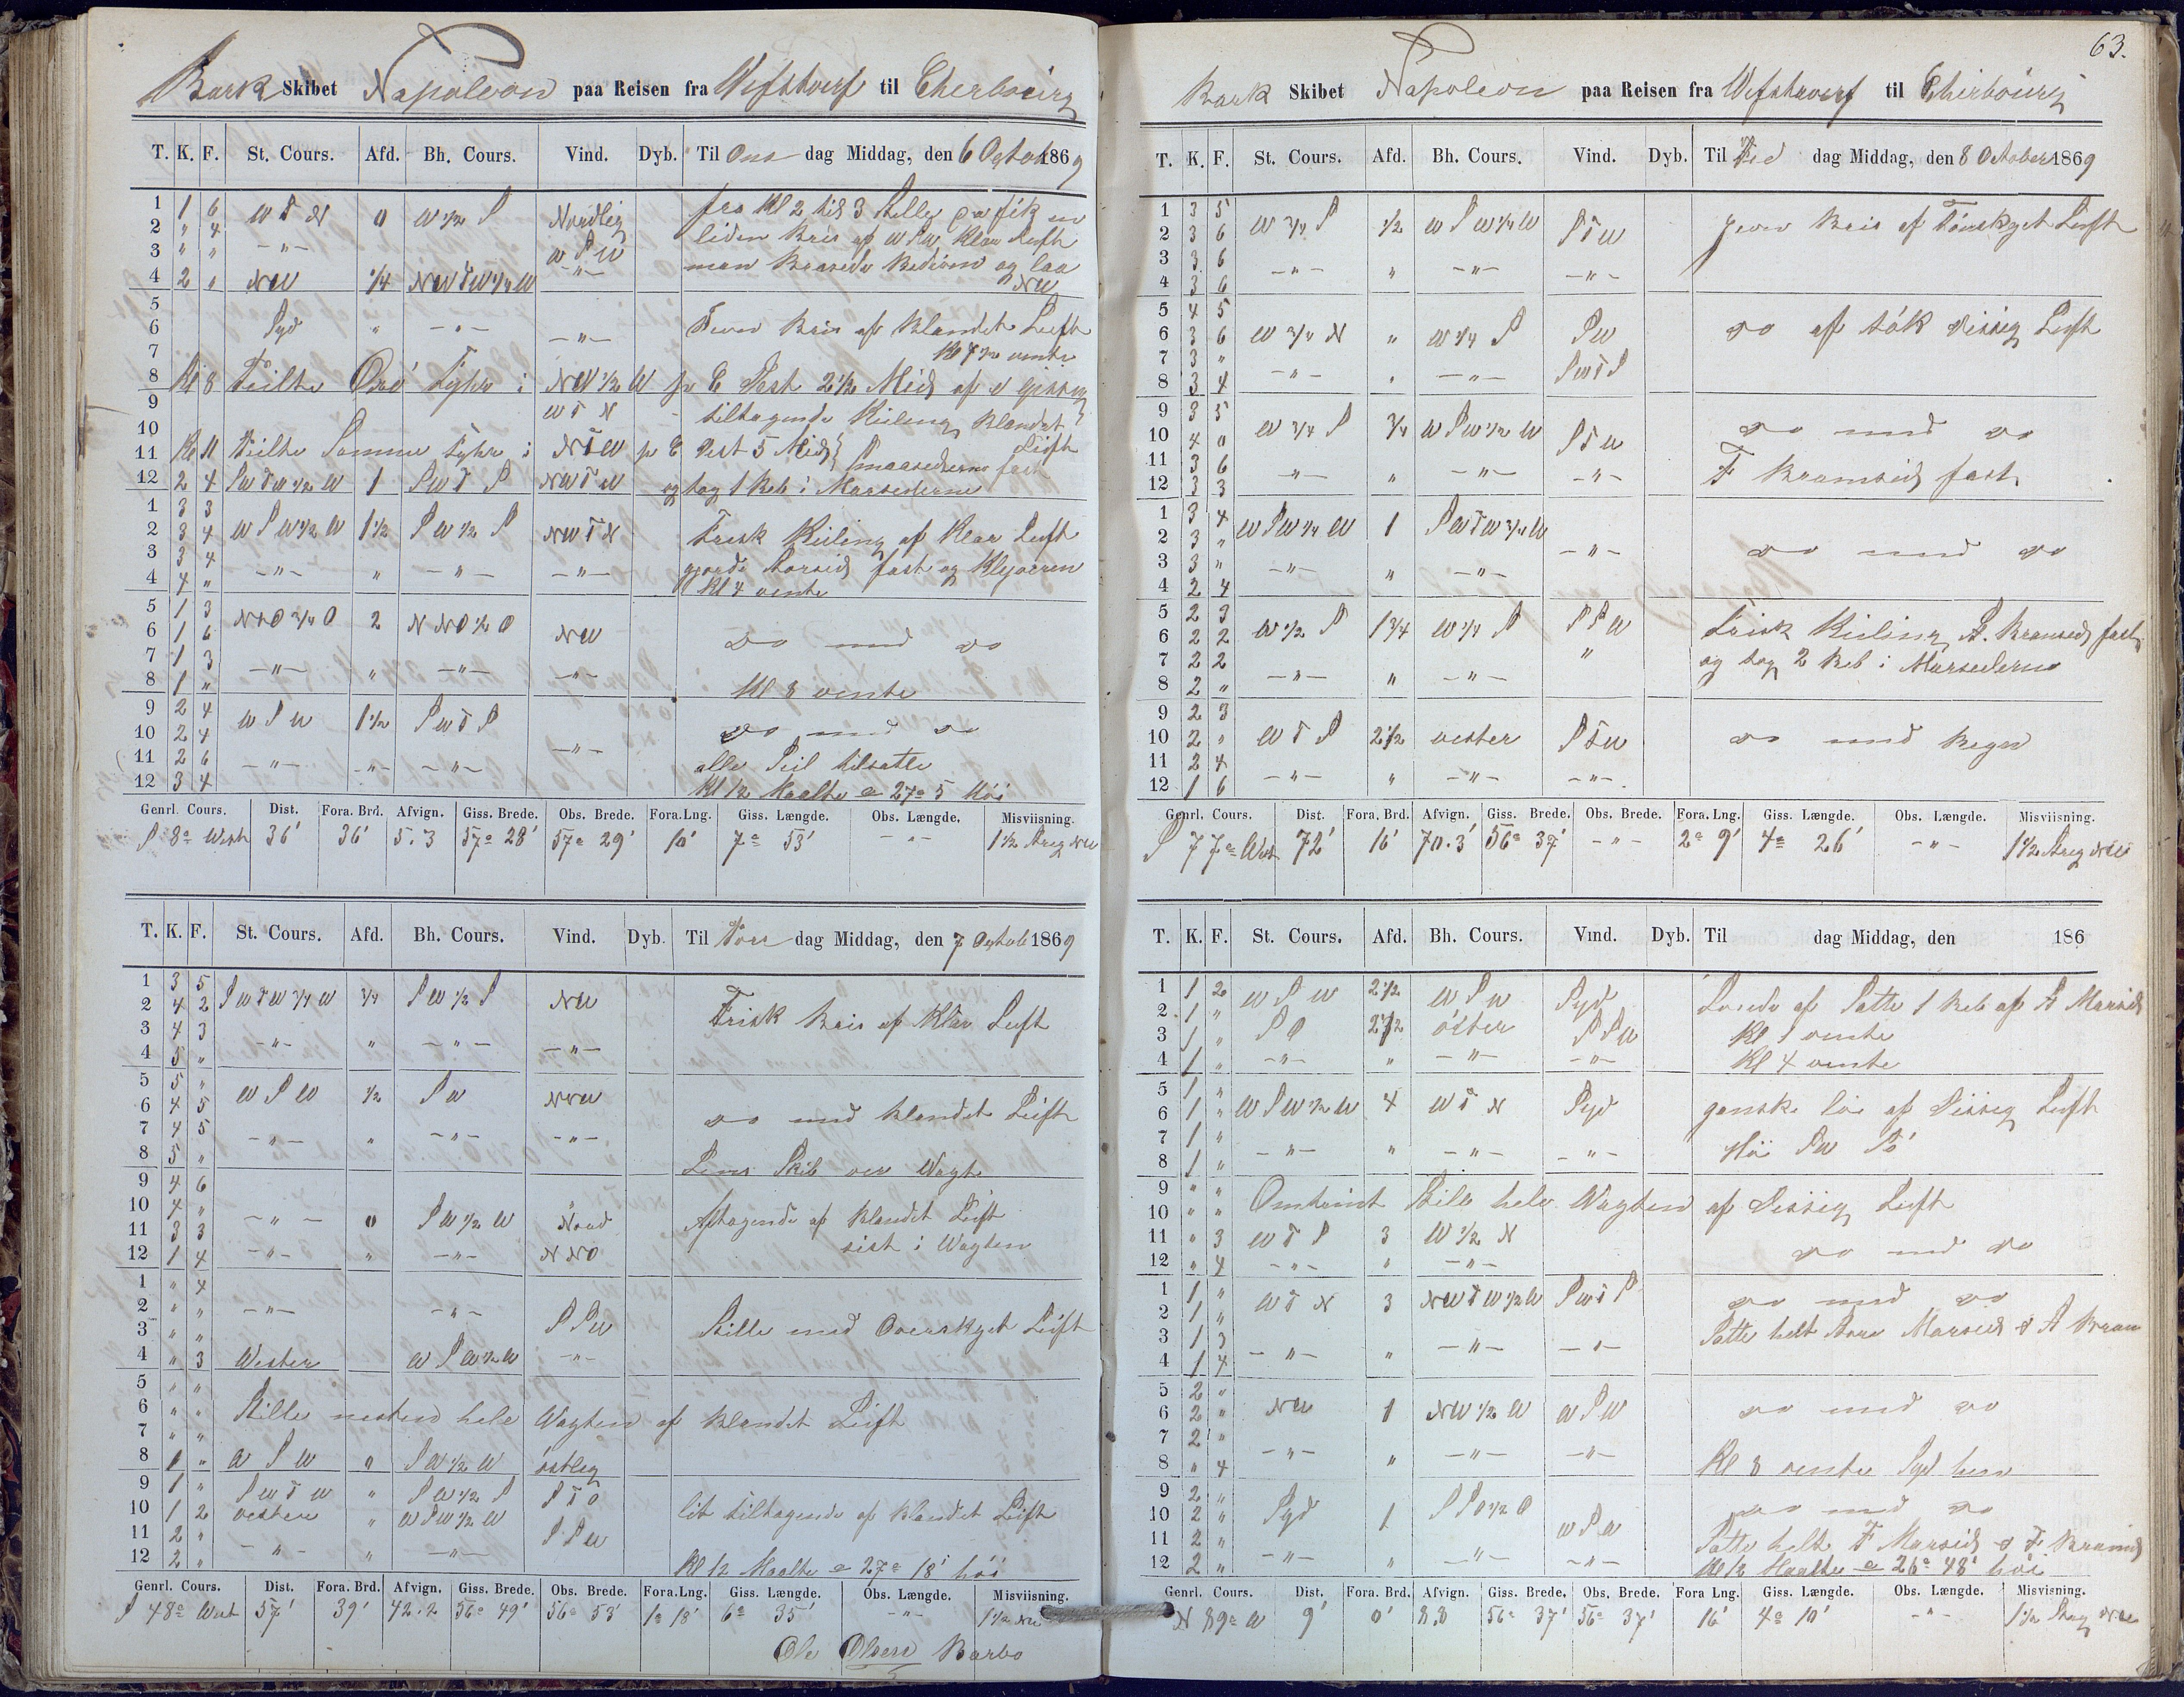 63.
Bark Skibet Napoleon paa Reisen fra Wifstverf til Cherbourg
T. K. F. St. Cours. Afd. Bh. Cours. Vind. Dyb. Til Ons dag Middag, den 6 Octob 1869
1 1 6 W T N 0 W 1/2 S Nordlig fra Kl 2 til 3 Stille og fik en
2 " 4 liden Bris af WSW, Klar Luft
3 " " -"- WSW man Brasede Bedvend og laa
4 2 " NW 1/4 NWTW 1/4 W -"- NW
5
6 Syd " -"- -"- Jevn Bris af Blandet Luft
7 Kl 7 1/2 vente
8 Kl 8 Peilte Oxö Fyhr i NW 1/2 W pr C Dest 2 1/2 Miil
9 W T N tiltagende Kuling Blandet
10 Luft
11 Kl 11 Peilte Samme Fyhr i NTW pr C Dest 5 Miil Smaaseilerne fast
12 2 4 SWTW 1/2 W 1 SWTS NWTW og tog 1 Reb i Marseilerne
1 3 3
2 3 4 WSW 1/2 W 1 1/2 SW 1/2 S NWTN Frisk Kuling af Klar Luft
3 3 4 gjorde Storseil fast og Klyveren
4 4 " -"- " -"- -"- Kl 4 vente
5 1 3 NTO 3/4 O 2 NNO 1/2 O
6 1 6 NW do med do
7 1 3
8 1 " -"- " -"- -"- Kl 8 vente
9 2 4 WSW 1 1/2 SWTS
10 2 4 do med do
11 2 6 -"- alle Seil tilsatte
12 3 4 -"- -"- -"- Kl 12 Maalte a 27° 5 Höi
Genrl. Cours. Dist. Fora. Brd. Afvign. Giss. Brede. Obs. Brede. Fora. Lng. Giss. Længde. Obs. Længde. Misviisning.
S 8° West 36' 36' 5.3 57° 28' 57° 29' 10' 7° 53' -"- 1 1/2 Streg NW
T. K. F. St. Cours. Afd. Bh. Cours. Vind. Dyb. Til Tors dag Middag, den 7 Octob 1869
1 3 5 SWTW 3/4 W 3/4 SW 1/2 S NW
2 4 2 Frisk Bris af Klar Luft
3 4 3
4 5 " -"- " -"- -"-
5 5 " WSW 1/2 SW NNW
6 4 5 do med blandet Luft
7 4 5
8 5 " -"- " -"- -"- Lens Skib ver Vagt
9 4 6
10 4 " -"- 0 SW 1/2 W Nord Aftagende af blandet Luft
11 3 3 sist i Vagten
12 1 4 -"- " -"- NNO
1 " 4
2 " " -"- -"- SSW Stille med Overskyet Luft
3 " "
4 " 3 Wester WSW 1/2 W -"-
5 " "
6 " " Stille nesten hele Vagten af blandet Luft
7 " "
8 1 " WSW 0 SW 1/2 W östlig
9 1 " SWTW " SW 1/2 S STO
10 1 2 vester " WSW 1/2 W lit tiltagende af blandet Luft
11 2 " SSW
12 2 " -"- " -"- Kl 12 Maalte a 27° 18' höi
Genrl. Cours. Dist. Fora. Brd. Afvign. Giss. Brede. Obs. Brede. Fora. Lng. Giss. Længde. Obs. Længde. Misviisning.
S 48° West 57' 39' 42.2 56° 49' 56° 53' 1° 18' 6° 35' -"- 1 1/2 NW
Ole Olsen Barbo
Bark Skibet Napoleon paa Reisen fra Wifstaverf til Cherbourg
T. K. F. St. Cours. Afd. Bh. Cours. Vind. Dyb. Til Fre dag Middag, den 8 October 1869
1 3 5 W 3/4 S 1/2 WSW 1/4 W STW jevn Bris af Tönskyet Luft
2 3 6
3 3 6
4 3 6 -"- " -"- -"-
5 4 5
6 3 6 W 3/4 N " W 1/4 S SW do af tök dissig Luft
7 3 "
8 3 4 -"- " -"- SWTS
9 3 5 W 3/4 S 3/4 WSW 1/2 W
10 4 0 STW do med do
11 3 6
12 3 3 -"- " -"- -"- F Bramseil fast
1 3 4 WSW 1/4 W 1 SWTW 3/4 W
2 3 " -"- do med do
3 3 " -"-
4 2 4 " -"-
5 2 3
6 2 2 W 1/2 S 1 3/4 W 1/4 S SSW Frisk Kuling St. Bramseil fast
7 2 2 " og tog 2 Reb i Marseilerne
8 2 " -"- " -"-
9 2 3
10 2 " WTS 2 1/2 vester STW do med Regn
11 2 4
12 1 6 -"- " -"- -"-
Genrl. Cours. Dist. Fora. Brd. Afvign. Giss. Brede. Obs. Brede. Fora. Lng. Giss. Længde. Obs. Længde. Misviisning.
S 77° West 72' 16' 70.3' 56° 37' -"- 2° 9' 4° 26' -"- 1 1/2 Streg NW
T. K. F. St. Cours. Afd. Bh. Cours. Vind. Dyb. Til dag Middag, den 186
1 1 2 WSW 2 1/2 WSW Syd af Satte 1 Reb af St Marseil
2 1 " SO 2 1/2 öster SSW Kl 1 vente
3 1 "
4 1 " -"- " -"- -"- Kl 4 vente
5 1 "
6 1 " WSW 1/2 W 4 WTN Syd ganske löi af Dissig Luft
7 1 " Höi SW Sö
8 1 " -"- " -"- -"-
9 " " Omtrent Stille hele Vagten af Dissig Luft
10 " "
11 " 3 WTS 3 W 1/2 N
12 " 4 -"- " -"- do med do
1 1 " WTN 3 NWTW 1/2 W SWTS do med do
2 1 " Satte helt Store Marseil & St Bram
3 1 3
4 1 4 -"- " -"- -"-
5 2 "
6 2 " NW 1 NW 1/2 W WSW do med do
7 2 "
8 " 4 -"- " -"- -"- Kl 8 vente Syd hen
9 2 "
10 2 " Syd 1 SSO 1/2 O WSW do med do
11 2 " Satte helt F Marseil & F Bramseil
12 2 " -"- " -"- -"- Kl 12 Maalte a 26° 48' höi
Genrl. Cours. Dist. Fora. Brd. Afvign. Giss. Brede. Obs. Brede. Fora Lng. Giss. Længde. Obs. Længde. Misvisning.
N 89° W 9' 0' 8.8 56° 37' 56° 37' 16' 4° 10' -"- 1 1/2 Streg NW